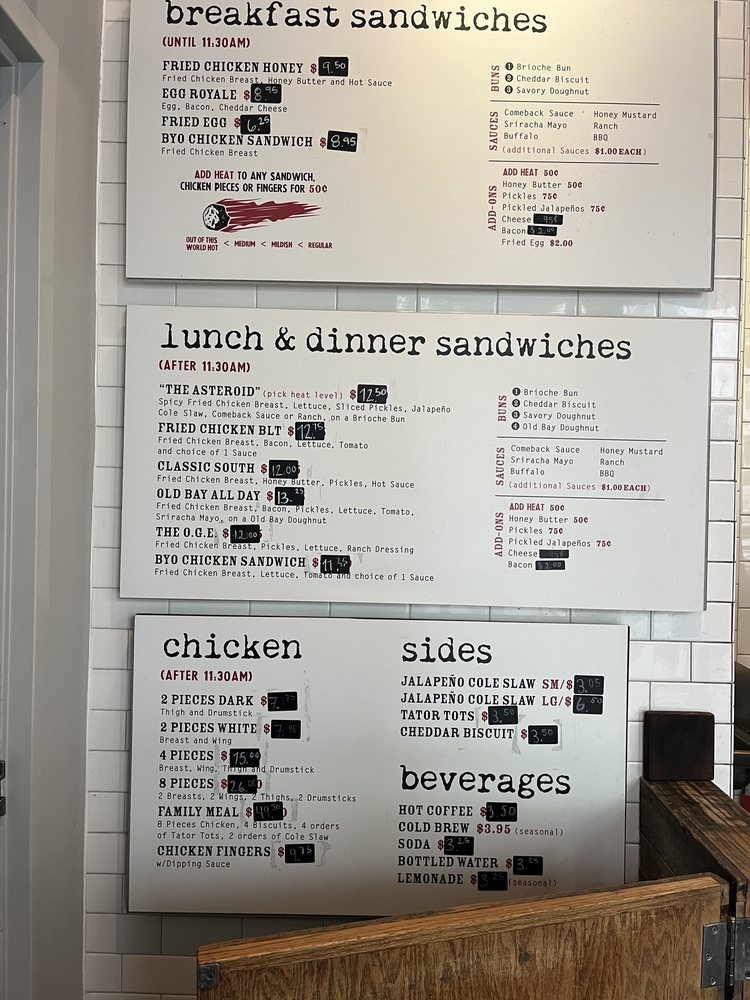 breakfast sandwiches
(UNTIL 11:30AM)
FRIED CHICKEN HONEY $9.50
Fried Chicken Breast, Honey Butter and Hot Sauce
EGG ROYALE $8.95
Egg, Bacon, Cheddar Cheese
FRIED EGG $6.25
BYO CHICKEN SANDWICH $8.95
Fried Chicken Breast
ADD HEAT TO ANY SANDWICH,
CHICKEN PIECES OR FINGERS FOR 50¢
OUT OF THIS WORLD HOT < MEDIUM < MILDISH < REGULAR
BUNS
1 Brioche Bun
2 Cheddar Biscuit
3 Savory Doughnut
SAUCES
Comeback Sauce Honey Mustard
Sriracha Mayo Ranch
Buffalo BBQ
(additional Sauces $1.00 EACH)
ADD-ONS
ADD HEAT 50¢
Honey Butter 50¢
Pickles 75¢
Pickled Jalapeños 75¢
Cheese .95¢
Bacon $2.00
Fried Egg $2.00
lunch & dinner sandwiches
(AFTER 11:30AM)
"THE ASTEROID" (pick heat level) $12.50
Spicy Fried Chicken Breast, Lettuce, Sliced Pickles, Jalapeño
Cole Slaw, Comeback Sauce or Ranch, on a Brioche Bun
FRIED CHICKEN BLT $12.75
Fried Chicken Breast, Bacon, Lettuce, Tomato
and choice of 1 Sauce
CLASSIC SOUTH $12.00
Fried Chicken Breast, Honey Butter, Pickles, Hot Sauce
OLD BAY ALL DAY $13.25
Fried Chicken Breast, Bacon, Pickles, Lettuce, Tomato,
Sriracha Mayo, on a Old Bay Doughnut
THE O.G.E. $12.00
Fried Chicken Breast, Pickles, Lettuce, Ranch Dressing
BYO CHICKEN SANDWICH $11.25
Fried Chicken Breast, Lettuce, Tomato and choice of 1 Sauce
BUNS
1 Brioche Bun
2 Cheddar Biscuit
3 Savory Doughnut
4 Old Bay Doughnut
SAUCES
Comeback Sauce Honey Mustard
Sriracha Mayo Ranch
Buffalo BBQ
(additional Sauces $1.00 EACH)
ADD-ONS
ADD HEAT 50¢
Honey Butter 50¢
Pickles 75¢
Pickled Jalapeños 75¢
Cheese
Bacon $2.00
chicken
(AFTER 11:30AM)
2 PIECES DARK $7.
Thigh and Drumstick
2 PIECES WHITE $7.95
Breast and Wing
4 PIECES $15.00
Breast, Wing, Thigh and Drumstick
8 PIECES $26.00
2 Breasts, 2 Wings, 2 Thighs, 2 Drumsticks
FAMILY MEAL $49.50
8 Pieces Chicken, 4 Biscuits, 4 orders
of Tator Tots, 2 orders of Cole Slaw
CHICKEN FINGERS $9.75
w/Dipping Sauce
sides
JALAPEÑO COLE SLAW SM/$3.05
JALAPEÑO COLE SLAW LG/$6.50
TATOR TOTS $3.50
CHEDDAR BISCUIT $3.50
beverages
HOT COFFEE $3.50
COLD BREW $3.95 (seasonal)
SODA $3.25
BOTTLED WATER $3.25
LEMONADE $3.25 (seasonal)